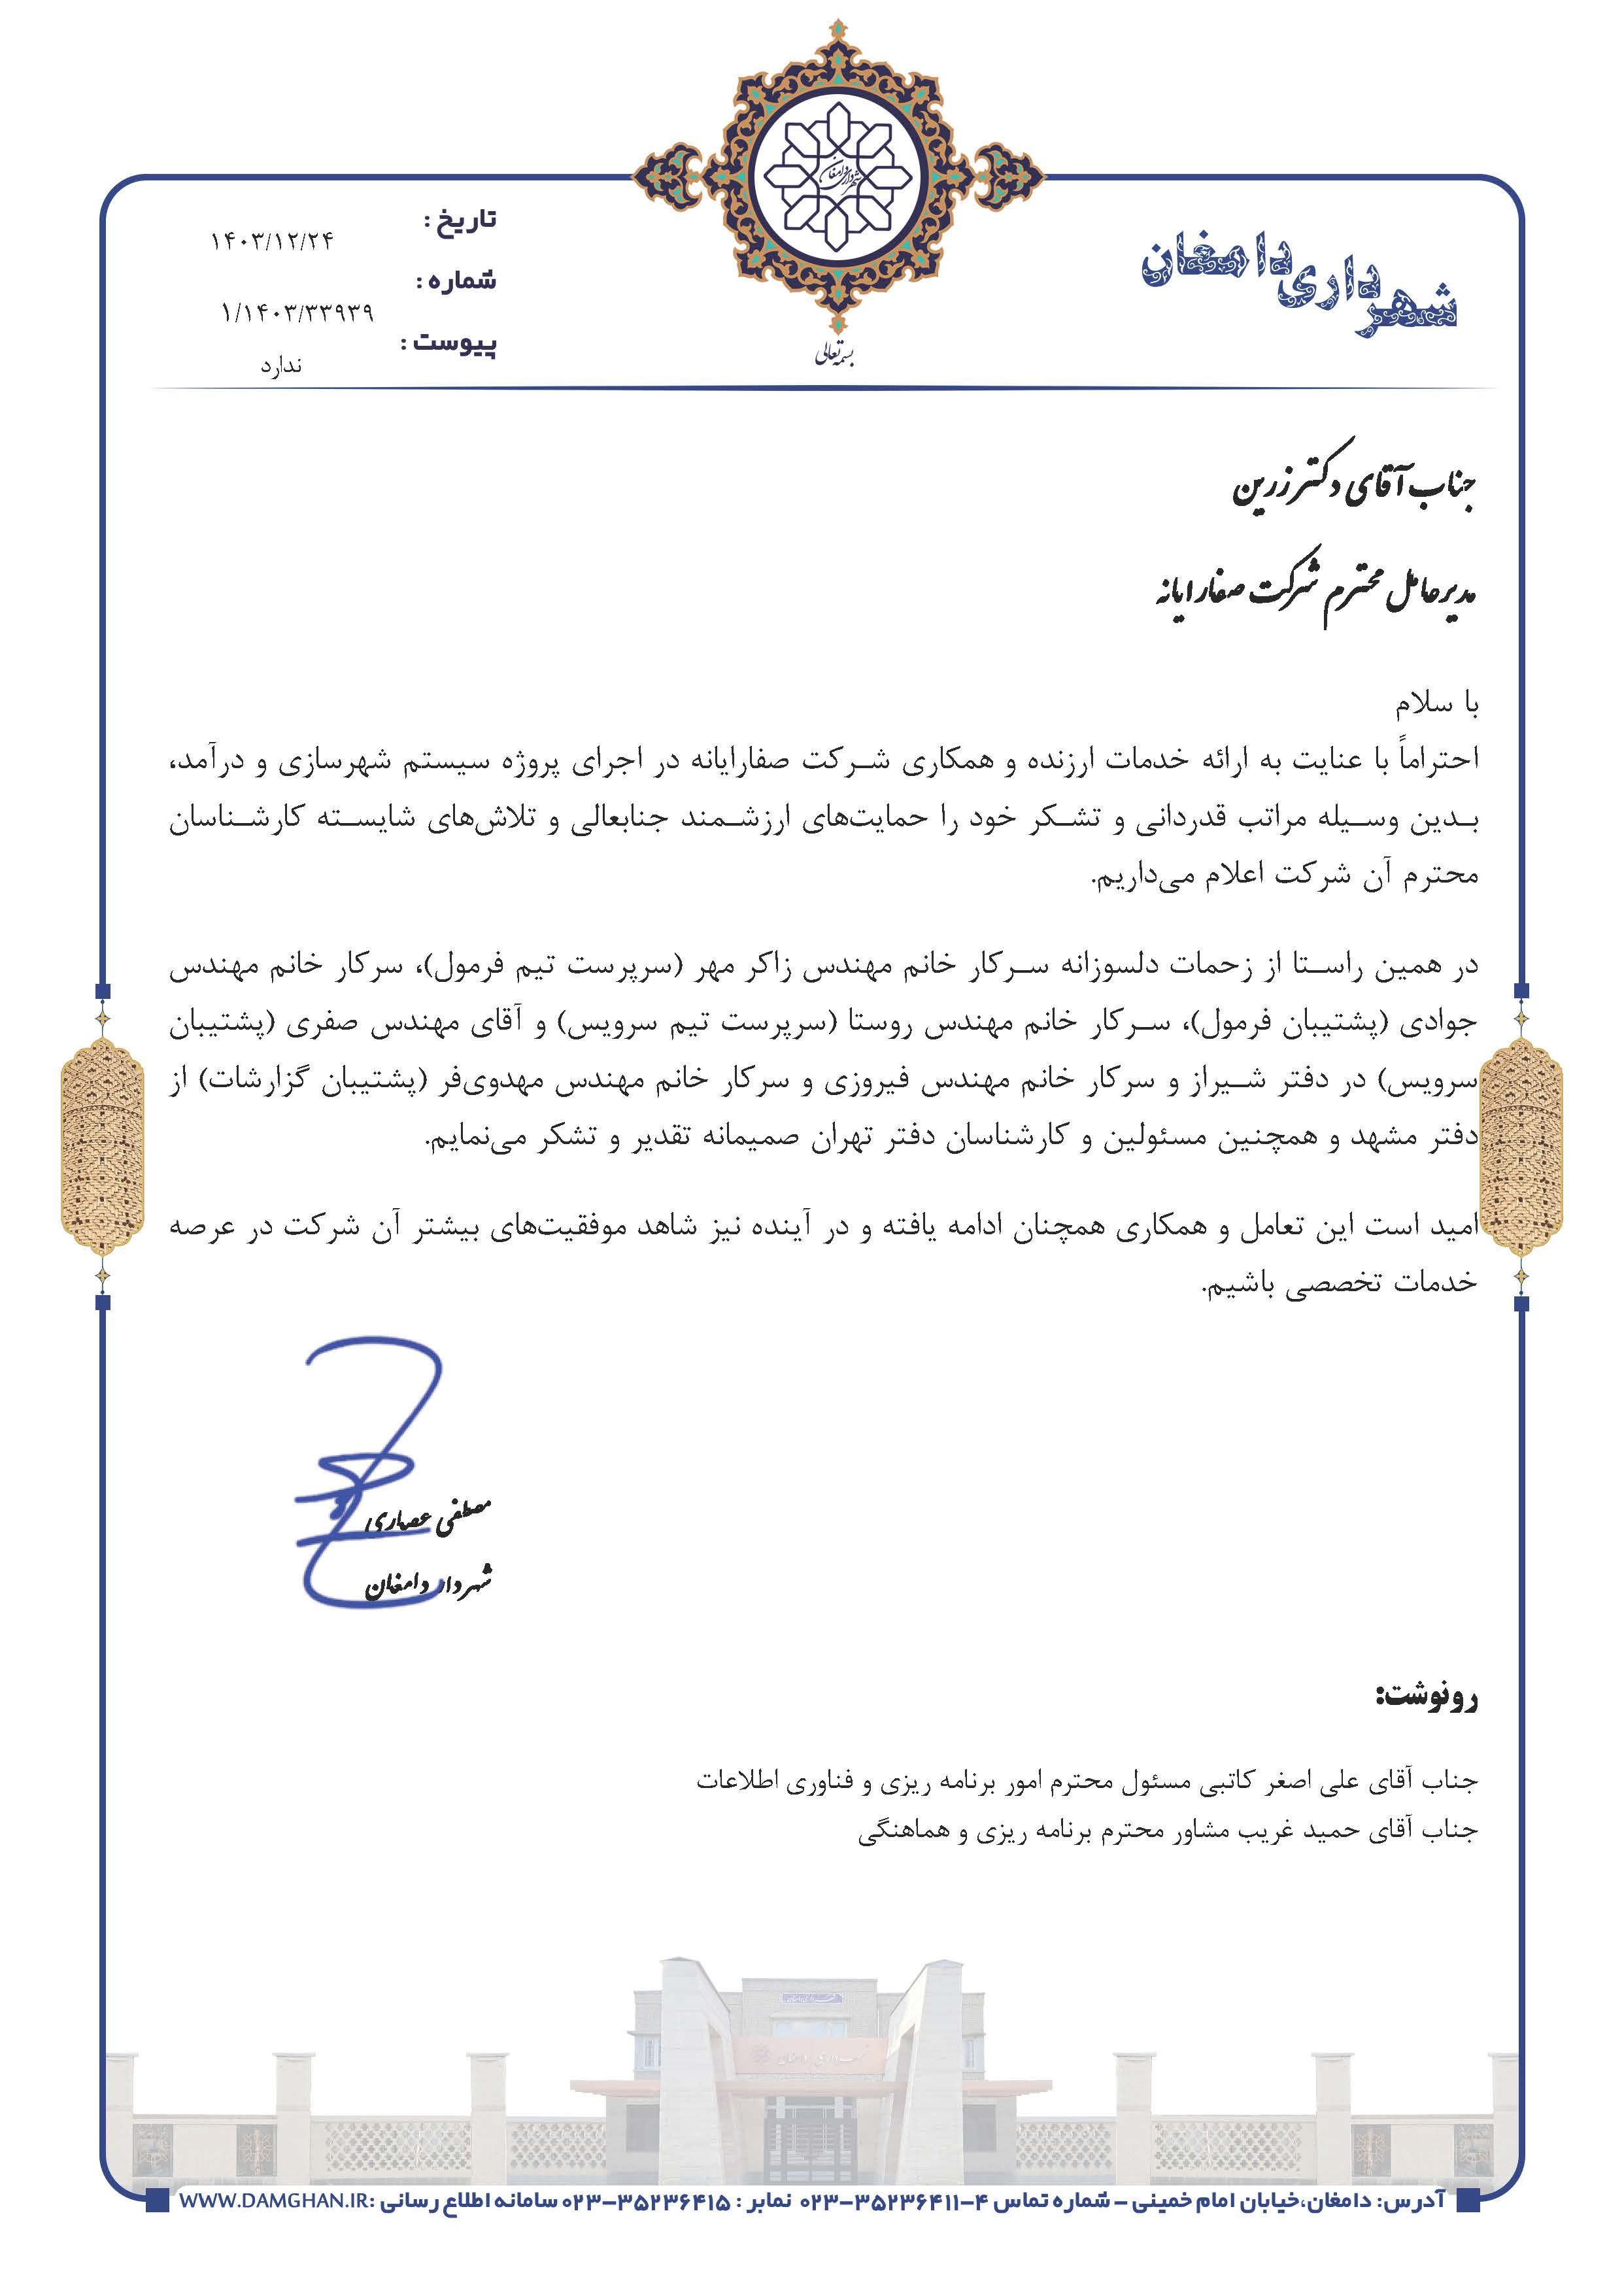 شهرداری دامغان
شهرداری دامغان
تاریخ :
۱۴۰۳/۱۲/۲۴
شماره :
۱/۱۴۰۳/۳۳۹۳۹
پیوست :
ندارد
بسمه تعالی
جناب آقای دکتر زرین
مدیرعامل محترم شرکت صفارایانه
با سلام
احتراماً با عنایت به ارائه خدمات ارزنده و همکاری شرکت صفارایانه در اجرای پروژه سیستم شهرسازی و درآمد،
بدین وسیله مراتب قدردانی و تشکر خود را حمایت‌های ارزشمند جنابعالی و تلاش‌های شایسته کارشناسان
محترم آن شرکت اعلام می‌داریم.
در همین راستا از زحمات دلسوزانه سرکار خانم مهندس زاکر مهر (سرپرست تیم فرمول)، سرکار خانم مهندس
جوادی (پشتیبان فرمول)، سرکار خانم مهندس روستا (سرپرست تیم سرویس) و آقای مهندس صفری (پشتیبان
سرویس) در دفتر شیراز و سرکار خانم مهندس فیروزی و سرکار خانم مهندس مهدوی‌فر (پشتیبان گزارشات) از
دفتر مشهد و همچنین مسئولین و کارشناسان دفتر تهران صمیمانه تقدیر و تشکر می‌نمایم.
امید است این تعامل و همکاری همچنان ادامه یافته و در آینده نیز شاهد موفقیت‌های بیشتر آن شرکت در عرصه
خدمات تخصصی باشیم.
مصطفی عصاری
شهردار دامغان
رونوشت:
جناب آقای علی اصغر کاتبی مسئول محترم امور برنامه ریزی و فناوری اطلاعات
جناب آقای حمید غریب مشاور محترم برنامه ریزی و هماهنگی
شهرداری دامغان
آدرس: دامغان،خیابان امام خمینی – شماره تماس ۴–۳۵۲۳۶۴۱۱–۰۲۳ نمابر : ۳۵۲۳۶۴۱۵–۰۲۳ سامانه اطلاع رسانی :WWW.DAMGHAN.IR